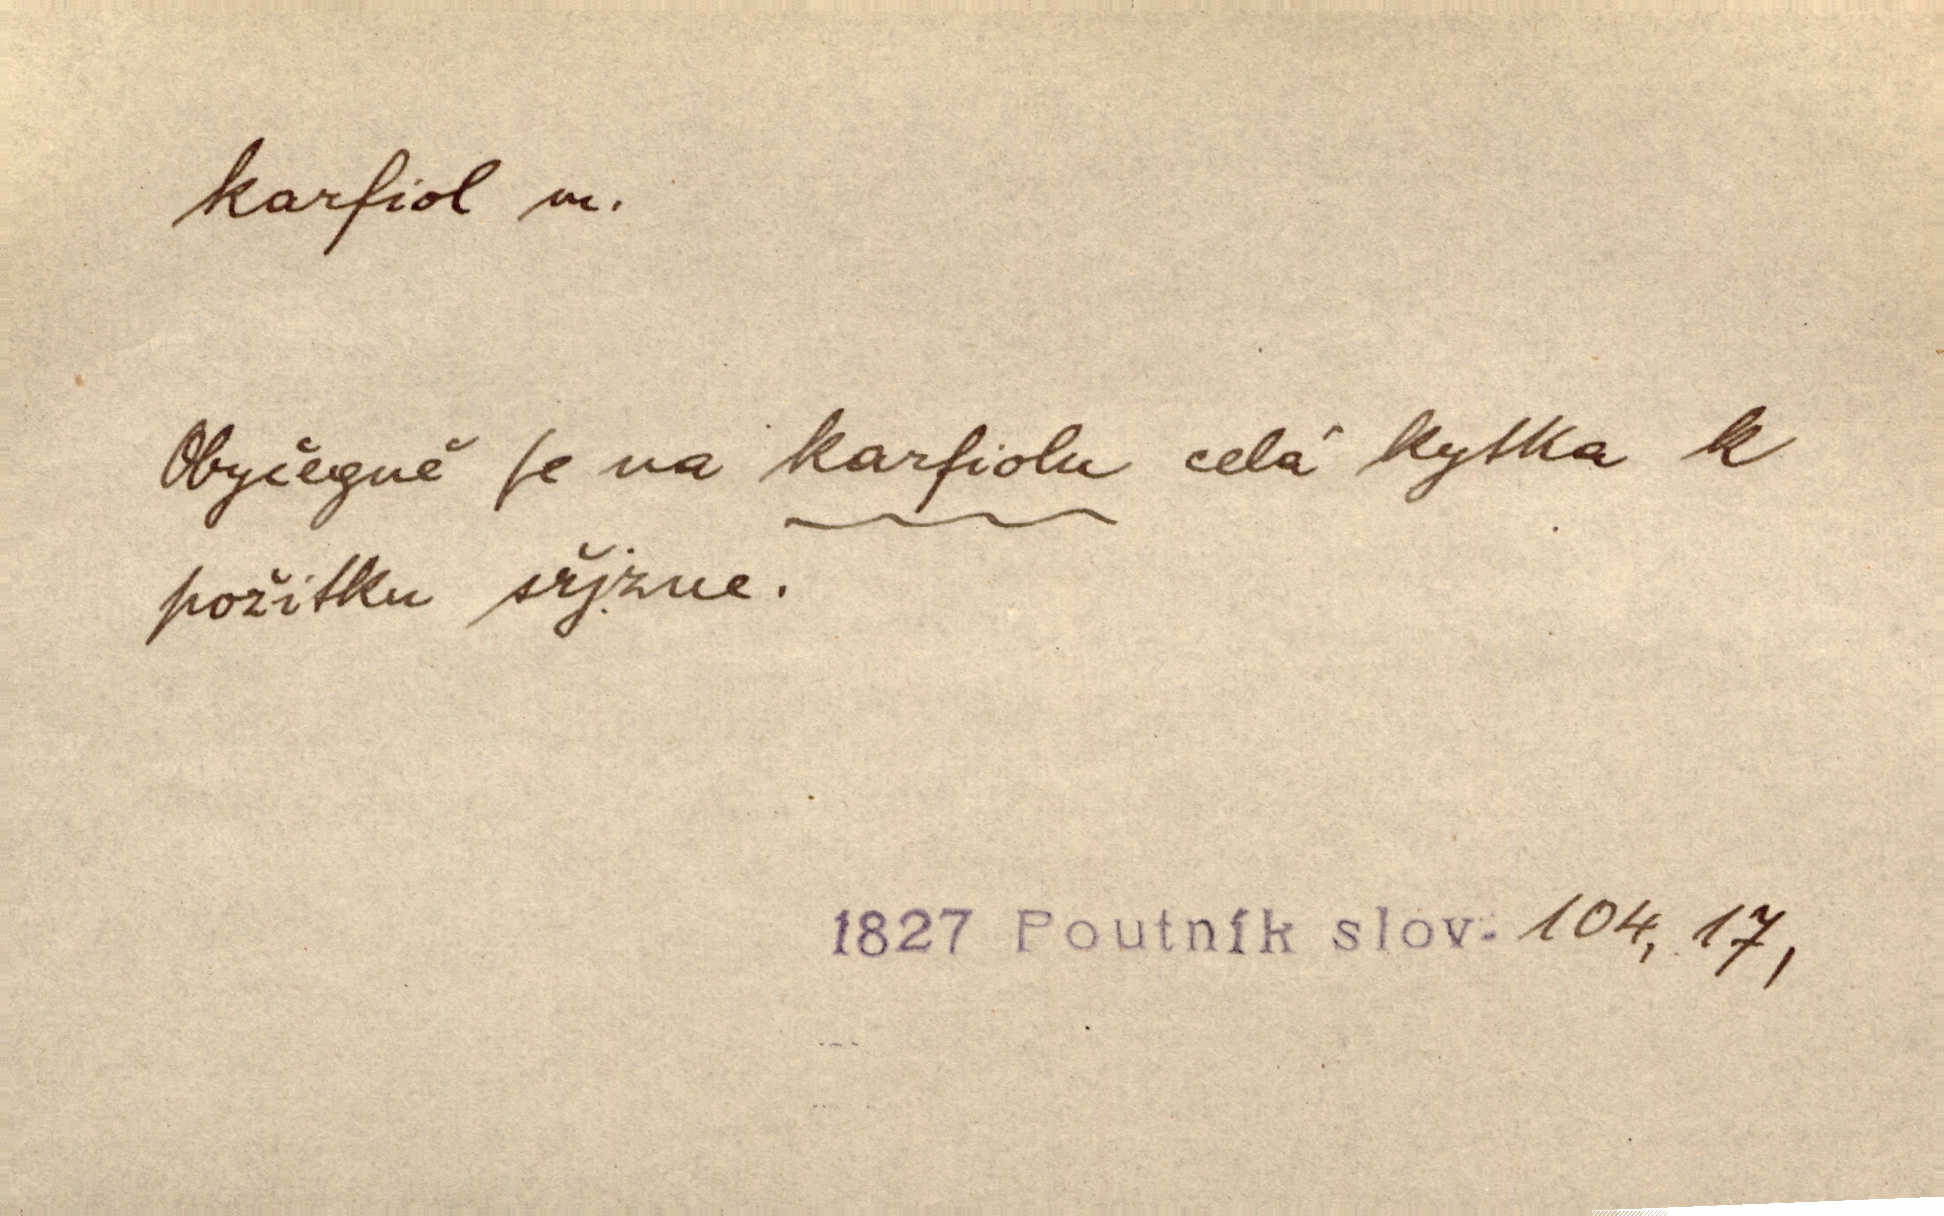 karfiol m.
Obyčegně ſe na karfiolu celá kytka k
požitku sřjzne.
1827 Poutník slov. 104, 17,